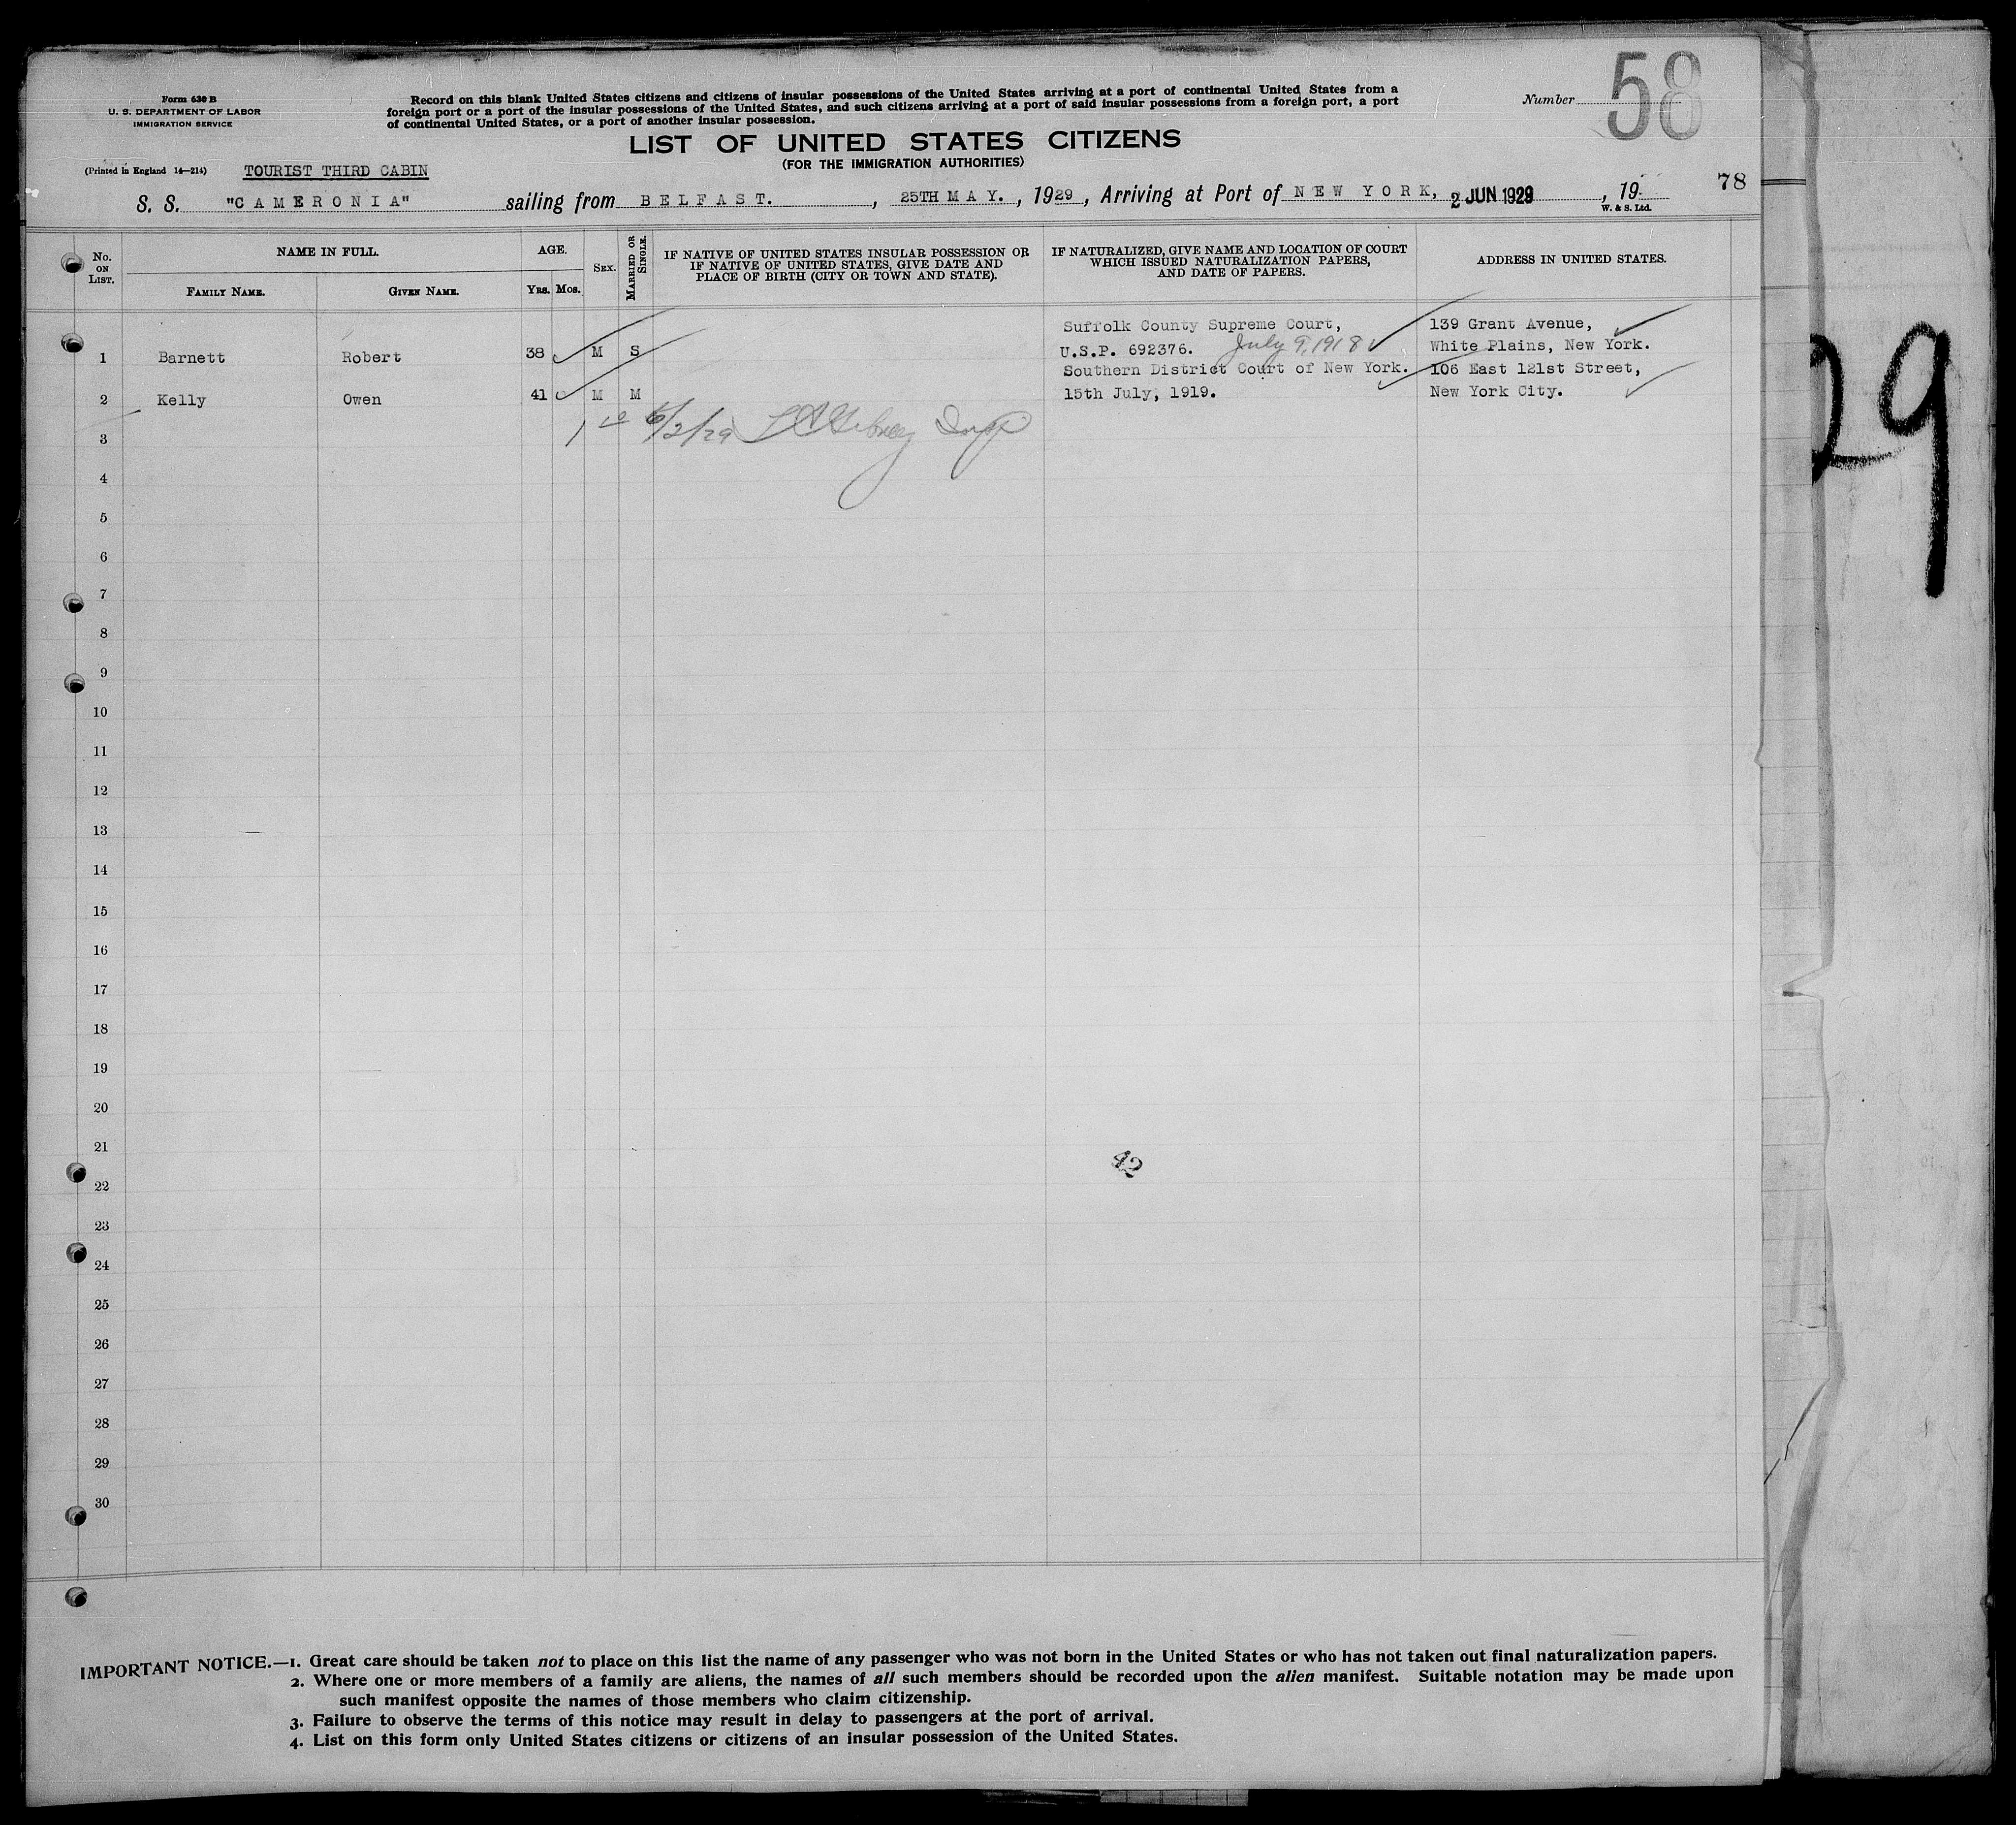 58
Form 630 B
U. S. DEPARTMENT OF LABOR
IMMIGRATION SERVICE
Record on this blank United States citizens and citizens of insular possessions of the United States arriving at a port of continental United States from a
foreign port or a port of the insular possessions of the United States, and such citizens arriving at a port of said insular possessions from a foreign port, a port
of continental United States, or a port of another insular possession.
Number
LIST OF UNITED STATES CITIZENS
(FOR THE IMMIGRATION AUTHORITIES)
(Printed in England 14—214) TOURIST THIRD CABIN
78
S. S. "CAMERONIA" sailing from BELFAST. , 25TH MAY. , 1929 , Arriving at Port of NEW YORK, 2 JUN 1929 , 19
W. & S. Ltd.
No. ON LIST.
NAME IN FULL.
FAMILY NAME.
GIVEN NAME.
AGE.
Yrs. Mos.
SEX.
MARRIED OR SINGLE.
IF NATIVE OF UNITED STATES INSULAR POSSESSION OR
IF NATIVE OF UNITED STATES, GIVE DATE AND
PLACE OF BIRTH (CITY OR TOWN AND STATE).
IF NATURALIZED, GIVE NAME AND LOCATION OF COURT
WHICH ISSUED NATURALIZATION PAPERS,
AND DATE OF PAPERS.
ADDRESS IN UNITED STATES.
Suffolk County Supreme Court, 139 Grant Avenue,
1 Barnett Robert 38 M S U.S.P. 692376. July 9, 1918 White Plains, New York.
Southern District Court of New York. 106 East 121st Street,
2 Kelly Owen 41 M M 15th July, 1919. New York City.
6/2/29
3
4
5
6
7
8
9
10
11
12
13
14
15
16
17
18
19
20
21
42
22
23
24
25
26
27
28
29
30
29
IMPORTANT NOTICE.—1. Great care should be taken not to place on this list the name of any passenger who was not born in the United States or who has not taken out final naturalization papers.
2. Where one or more members of a family are aliens, the names of all such members should be recorded upon the alien manifest. Suitable notation may be made upon
such manifest opposite the names of those members who claim citizenship.
3. Failure to observe the terms of this notice may result in delay to passengers at the port of arrival.
4. List on this form only United States citizens or citizens of an insular possession of the United States.